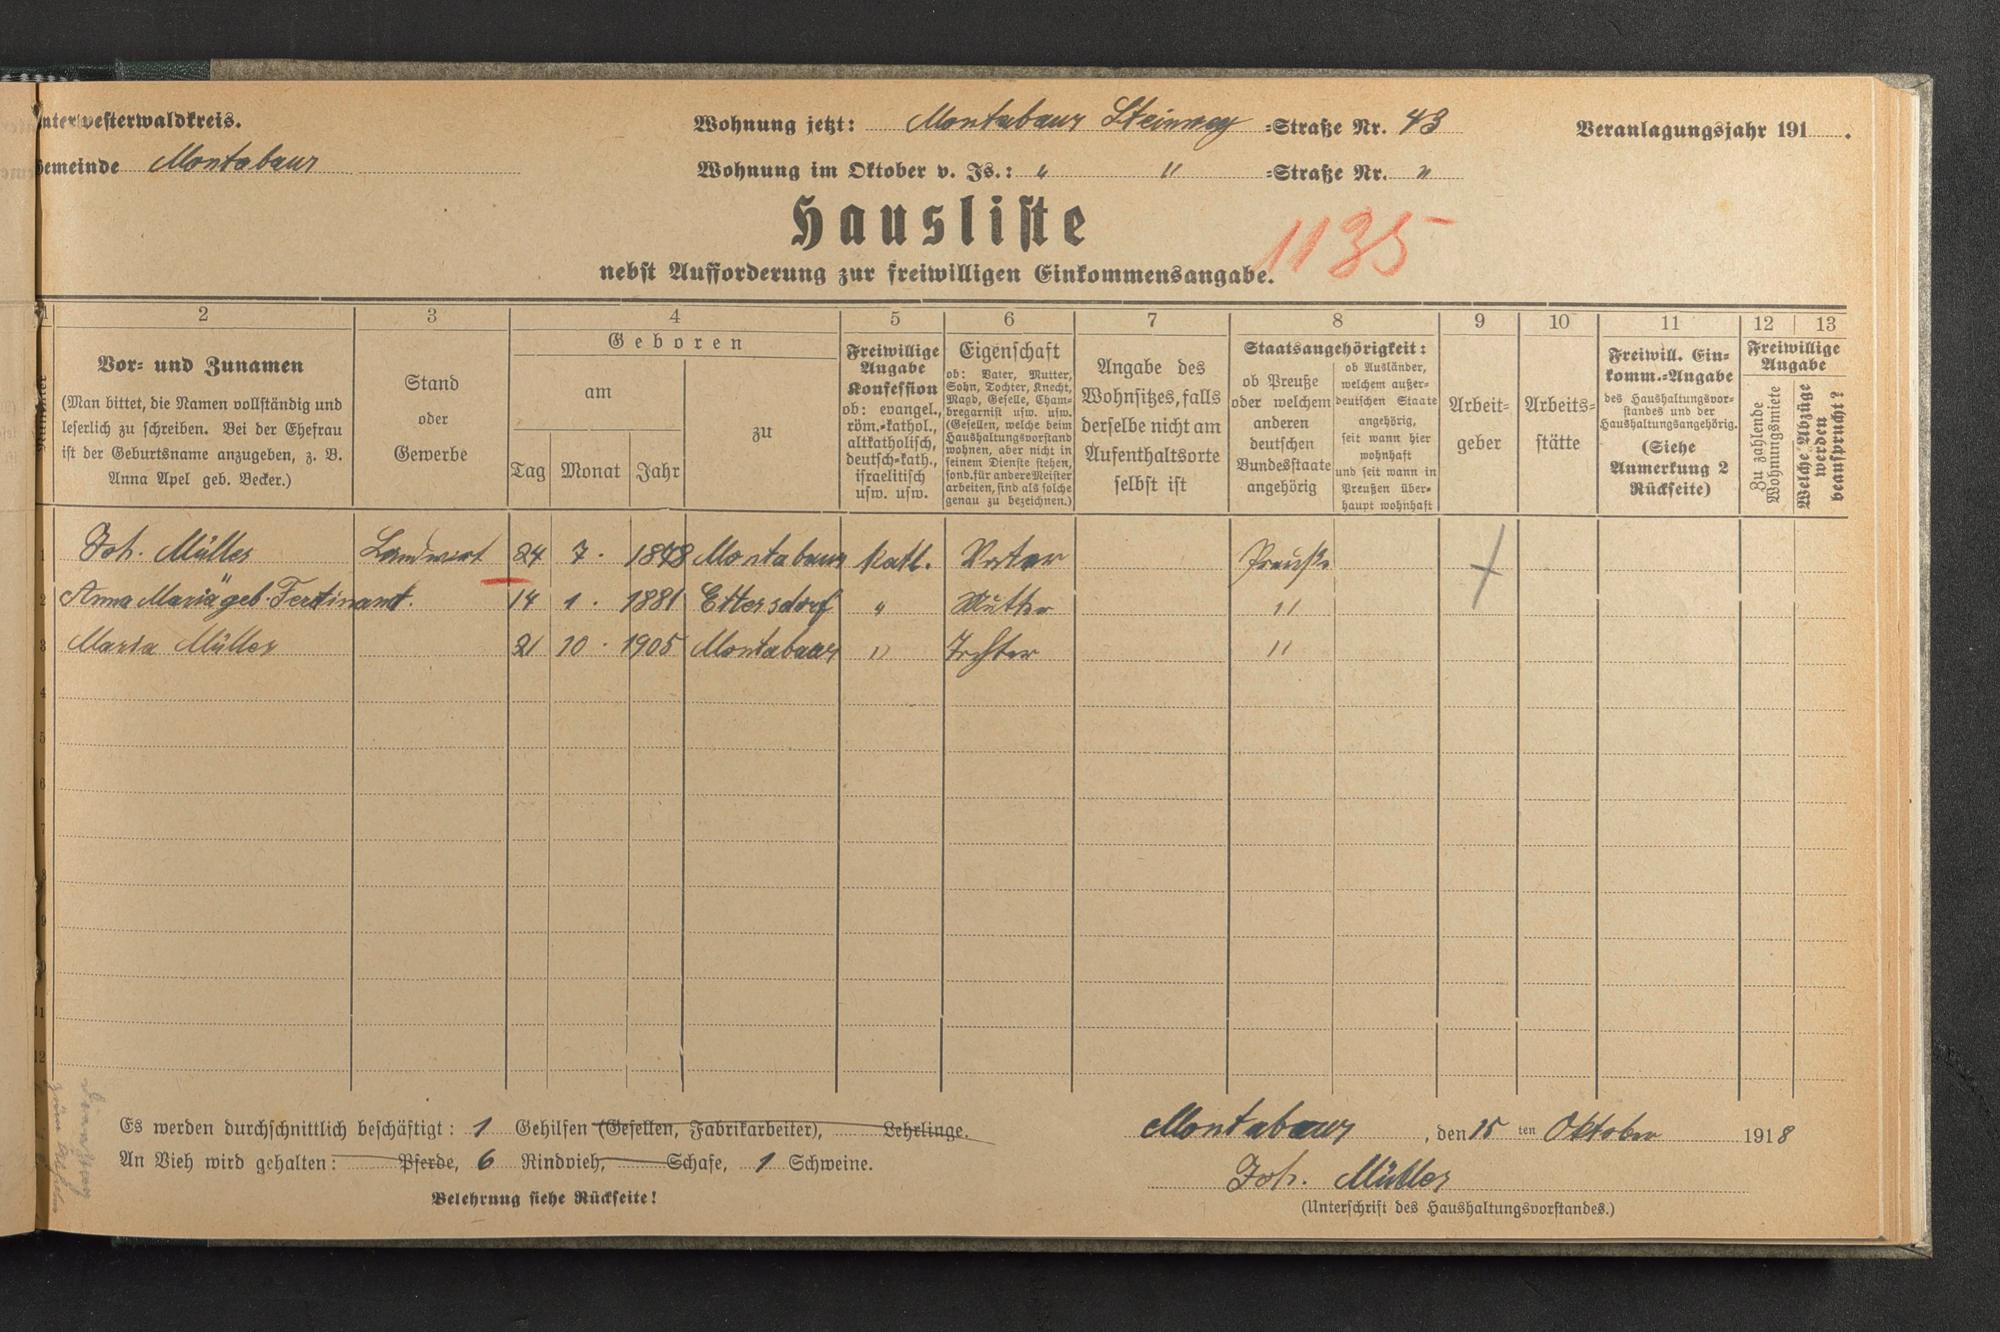 nterwesterwaldkreis.
Wohnung jetzt: Montabaur Steinweg =Straße Nr. 43
Veranlagungsjahr 191 .
Gemeinde Montabaur
Wohnung im Oktober v. Js.: " " =Straße Nr. "
Hausliste
1135
nebst Aufforderung zur freiwilligen Einkommensangabe.
1 2 3 4 5 6 7 8 9 10 11 12 13
Nummer
Vor- und Zunamen
(Man bittet, die Namen vollständig und
leserlich zu schreiben. Bei der Ehefrau
ist der Geburtsname anzugeben, z. B.
Anna Apel geb. Becker.)
Stand
oder
Gewerbe
Geboren
am
Tag Monat Jahr
zu
Freiwillige
Angabe
Konfession
ob: evangel.,
röm.-kathol.,
altkatholisch,
deutsch-kath.,
israelitisch
usw. usw.
Eigenschaft
ob: Vater, Mutter,
Sohn, Tochter, Knecht,
Magd, Geselle, Cham-
bregarnist usw. usw.
(Gesellen, welche beim
Haushaltungsvorstand
wohnen, aber nicht in
seinem Dienste stehen,
sond. für andere Meister
arbeiten, sind als solche
genau zu bezeichnen.)
Angabe des
Wohnsitzes, falls
derselbe nicht am
Aufenthaltsorte
selbst ist
Staatsangehörigkeit:
ob Preuße
oder welchem
anderen
deutschen
Bundesstaate
angehörig
ob Ausländer,
welchem außer-
deutschen Staate
angehörig,
seit wann hier
wohnhaft
und seit wann in
Preußen über-
haupt wohnhaft
Arbeit-
geber
Arbeits-
stätte
Freiwill. Ein-
komm.-Angabe
des Haushaltungsvor-
standes und der
Haushaltungsangehörig.
(Siehe
Anmerkung 2
Rückseite)
Freiwillige
Angabe
Zu zahlende
Wohnungsmiete
Welche Abzüge
werden
beansprucht?
1 Joh. Müller Landwirt 24 7. 1878 Montabaur kath. Vater Preuße
2 Anna Maria geb. Ferdinand. 14 1. 1881 Ettersdorf " Mutter "
3 Maria Müller 21 10. 1905 Montabaur " Tochter "
4
5
6
7
8
9
10
11
12
Es werden durchschnittlich beschäftigt: 1 Gehilfen (Gesellen, Fabrikarbeiter), Lehrlinge.
An Vieh wird gehalten: Pferde, 6 Rindvieh, Schafe, 1 Schweine.
Belehrung siehe Rückseite!
Montabaur, den 15 ten Oktober 1918
Joh. Müller
(Unterschrift des Haushaltungsvorstandes.)